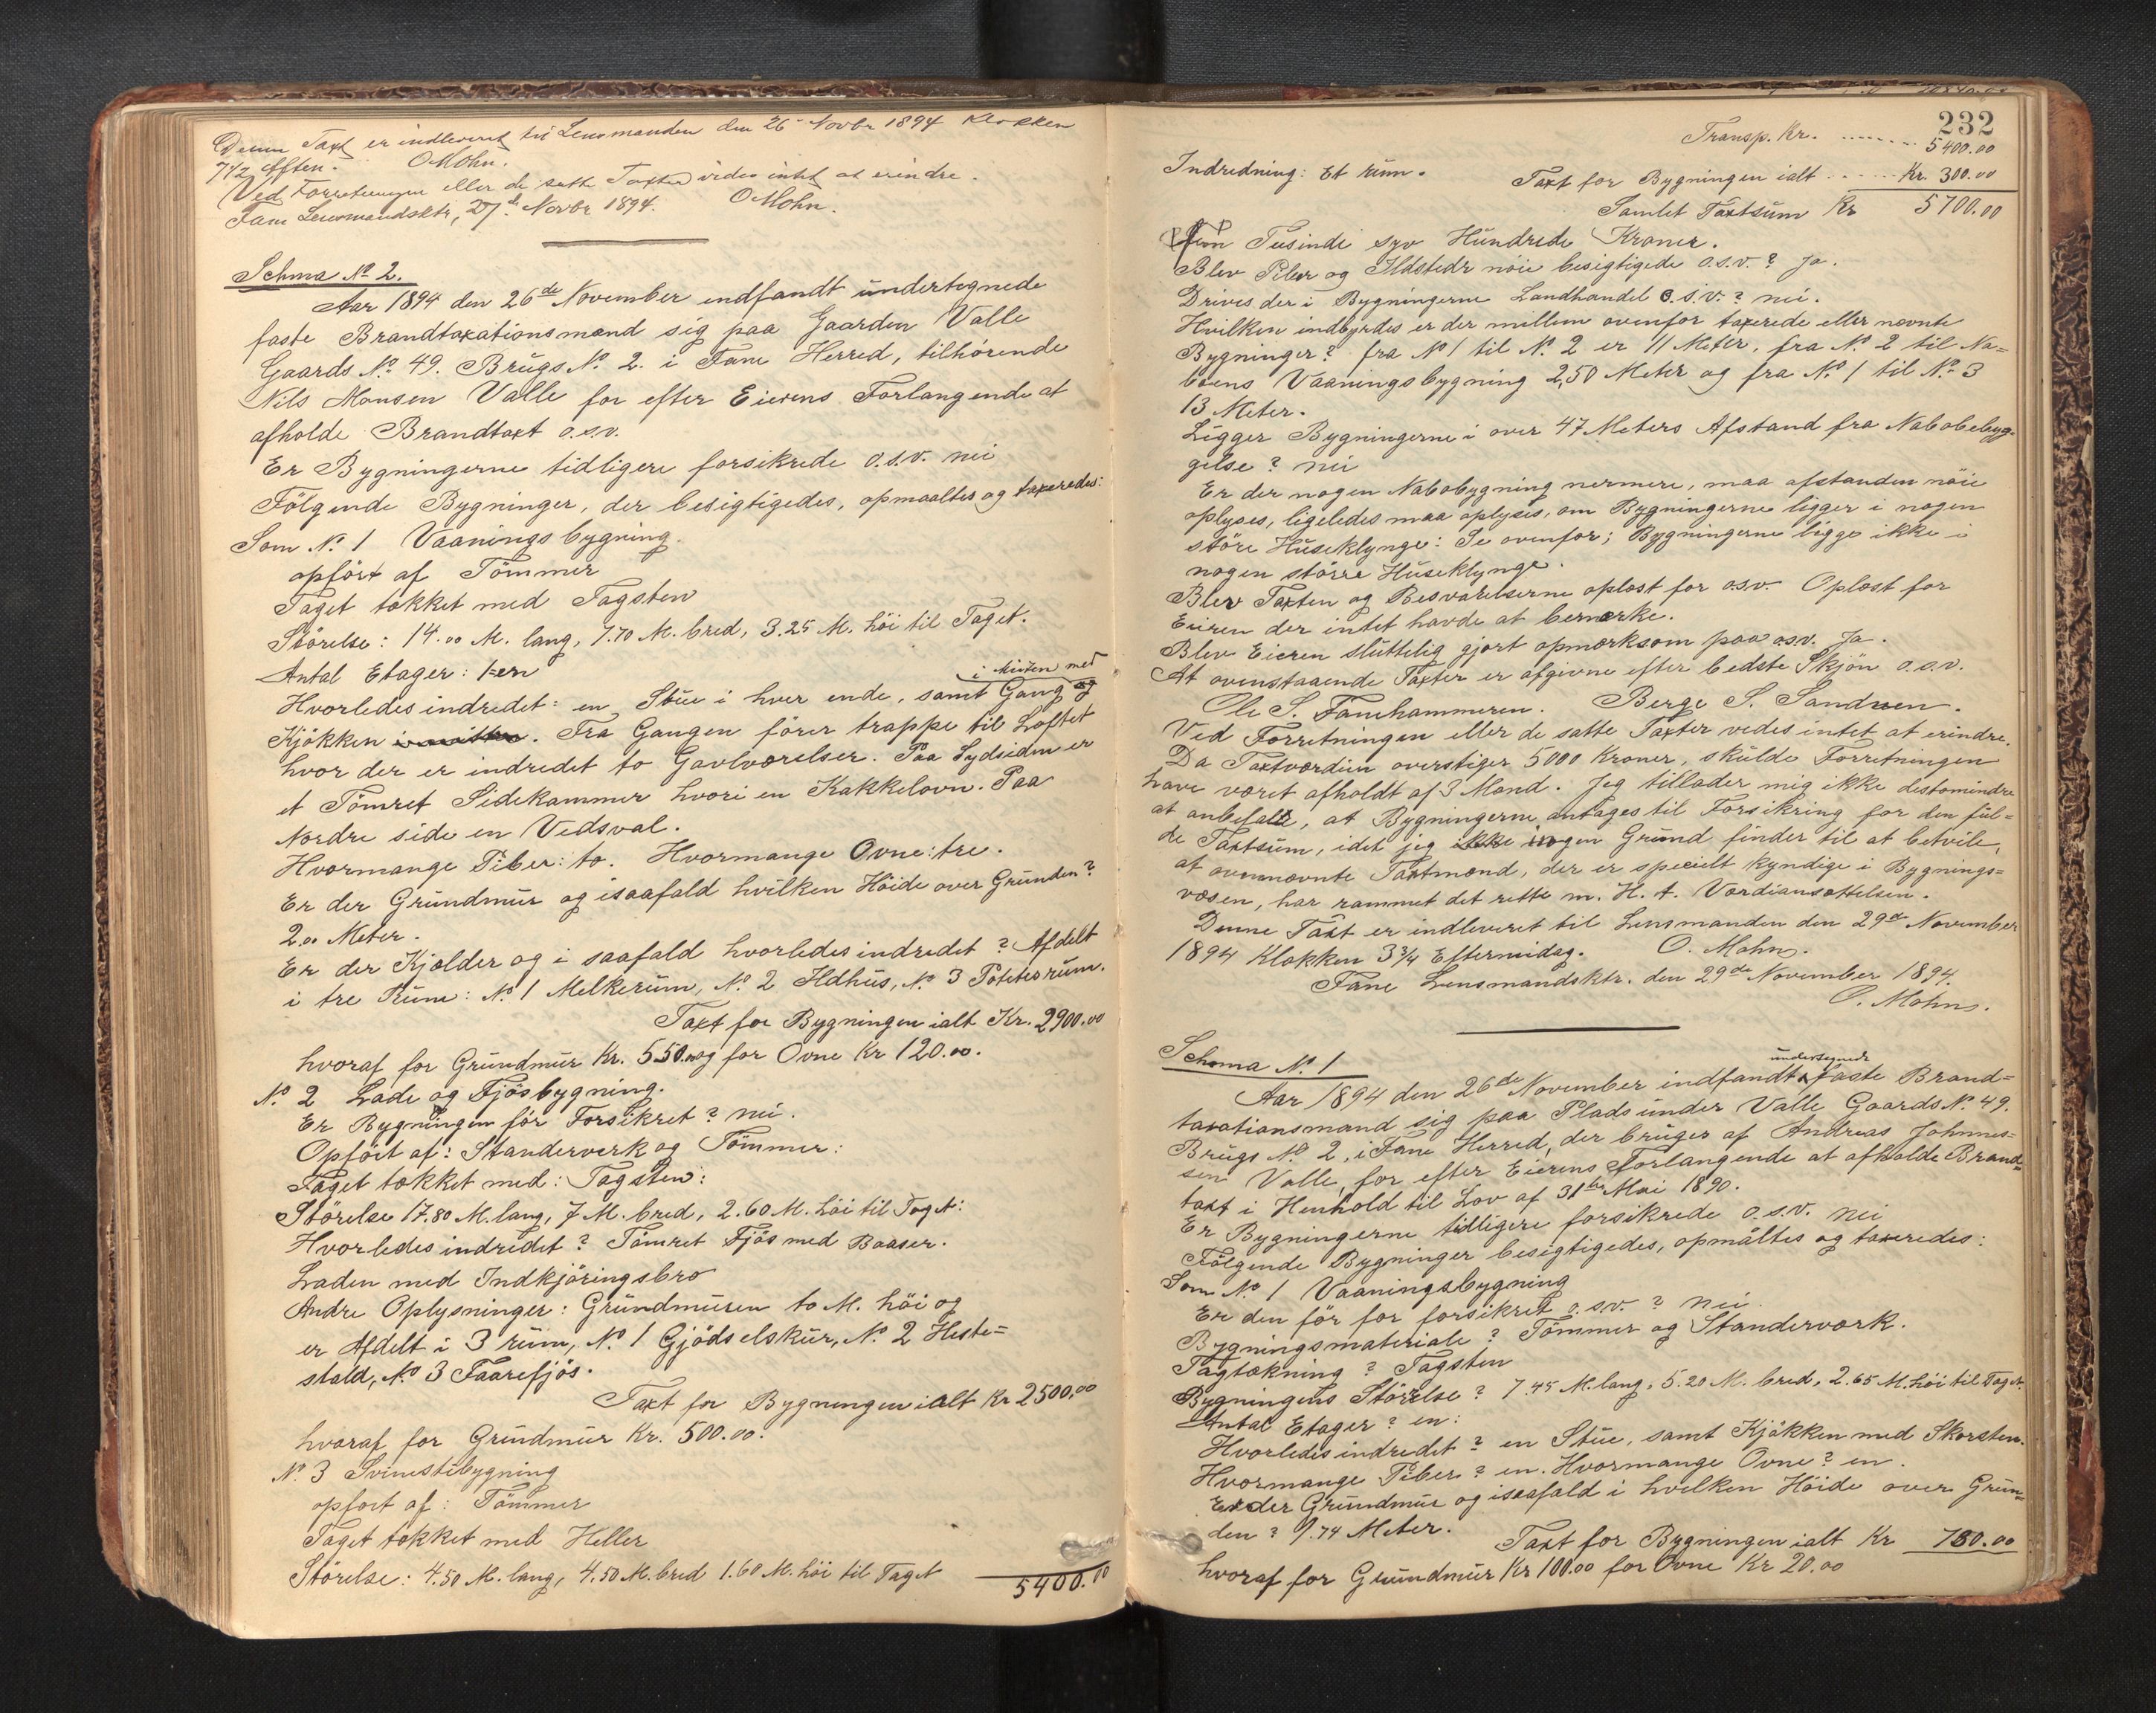 Denne Taxt er indleveret til Lensmanden den 26 Novbr 1894 Klokken
7 1/2 Aften. O Mohn.
Ved Forretningen eller de satte Taxter vides intet at erindre.
Fane Lensmandsktr, 27de Novbr 1894. O Mohn.
Schma No 2.
Aar 1894 den 26de November indfandt undertegnede
faste Brandtaxationsmænd sig paa Gaarden Valle
Gaards No 49. Brugs No 2. i Fane Herred, tilhörende
Nils Monsen Valle for efter Eierens Forlangende at
afholde Brandtaxt o.s.v.
Er Bygningerne tidligere forsikrede o.s.v. nei
Fölgende Bygninger, der besigtigedes, opmaaltes og taxeredes:
Som No 1 Vaaningsbygning.
opfört af Tömmer
Taget tækket med Tagsten
Störelse: 14.00 M. lang, 7.70 M. bred, 3.25 M. höi til Taget.
Antal Etager: 1-en
i Midten med
Hvorledes indredet: en Stue i hver ende, samt Gang og
Kjökken i midten. Fra Gangen förer trappe til Loftet
hvor der er indredet to Gavlværelser. Paa Sydsiden er
et Tömret Sidekammer hvori en Kakkelovn. Paa
Nordre side en Vedsval.
Hvormange Piber: to. Hvormange Ovne: tre.
Er der Grundmur og isaafald hvilken Höide over Grunden?
2.00 Meter.
Er der Kjælder og i saafald hvorledes indredet? Afdelt
i tre Rum: No 1 Melkerum, No 2 Ildhus, No 3 Poteterrum.
Taxt for Bygningen ialt Kr. 2900.00
hvoraf for Grundmur Kr. 550.00 og for Ovne Kr 120.00.
No 2 Lade og Fjösbygning.
Er Bygningen för Forsikret? nei.
Opfört af: Standerverk og Tömmer:
Taget tækket med: Tagsten:
Störelse 17.80 M. lang, 7 M. bred, 2.60 M. höi til Taget:
Hvorledes indredet? Tömret Fjös med Baaser.
Laden med Indkjöringsbro
Andre Oplysninger: Grundmuren to M. höi og
er Afdelt i 3 rum, No 1 Gjödselskur, No 2 Heste=
stald, No 3 Faarefjös.
Taxt for Bygningen ialt Kr 2500.00
hvoraf for Grundmur Kr. 500.00.
No 3 Svinestibygning
opfört af: Tömmer
Taget tækket med Heller
Störelse: 4.50 M. lang, 4.50 M. bred 1.60 M. höi til Taget
5400.00
232
Transp. Kr. ........ 5400.00
Indredning: Et rum.
Taxt for Bygningen ialt ...... Kr. 300.00
Samlet Taxtsum Kr 5700.00
Fem Tusinde syv Hundrede Kroner.
Blev Piber og Ildstedr nöie besigtigede o.s.v.? Ja.
Drives der i Bygningerne Landhandel o.s.v.? nei.
Hvilken indbyrdes er der millem ovenfor taxerede eller nævnte
Bygninger? fra No 1 til No 2 er 11 Meter, fra No 2 til Na=
boens Vaaningsbygning 2,50 Meter og fra No 1 til No 3
13 Meter.
Ligger Bygningerne i over 47 Meters Afstand fra Nabobebyg=
gelse? nei
Er der nogen Nabobygning nermere, maa afstanden nöie
oplyses, ligeledes maa oplyses, om Bygningerne ligger i nogen
störe Huseklynge: Se ovenfor; Bygningerne ligge ikke i
nogen större Huseklynge.
Blev Taxten og Besvarelserne oplæst for o.s.v. Oplæst for
Eieren der intet havde at bemærke.
Blev Eieren sluttelig gjort opmærksom paa o.s.v. Ja.
At ovenstaaende Taxter er afgivne efter bedste Skjön o.s.v.
Ole S. Fanehammeren. Berge S. Sandven.
Ved Forretningen eller de satte Taxter vedes intet at erindre.
Da Taxtværdien overstiger 5000 Kroner, skulde Forretningen
have været afholdt af 3 Mænd. Jeg tillader mig ikke destomindre
at anbefale, at Bygningerne antages til Forsikring for den ful=
de Taxtsum, idet jeg ikke nogen Grund finder til at betvile,
at ovennævnte Taxtmænd, der er specielt kyndige i Bygnings=
væsen, har rammet det rette m. H. t. Værdiansættelsen.
Denne Taxt er indleveret til Lensmanden den 29de November
1894 Klokken 3 3/4 Eftermidag. O. Mohn.
Fane Lensmandsktr. den 29de November 1894.
O. Mohn.
Schema No 1
undertegnede
Aar 1894 den 26de November indfandt faste Brand=
taxationsmænd sig paa Plads under Valle Gaards No 49.
Brugs No 2, i Fane Herred, der bruges af Andreas Johannes=
sen Valle, for efter Eierens Forlangende at afholde Brand=
taxt i Henhold til Lov af 31te Mai 1890.
Er Bygningerne tidligere forsikrede o.s.v. nei
Fölgende Bygninger besigtigedes, opmåltes og taxeredes:
Som No 1 Vaaningsbygning
Er den för for forsikret o.s.v.? nei.
Bygningsmateriale? Tömmer og Standerværk.
Tagtækning? Tagsten
Bygningens Störrelse? 7.45 M. lang, 5.20 M. bred, 2.65 M. höi til Taget.
Antal Etager? en:
Hvorledes indredet? en Stue, samt Kjökken med Skorsten.
Hvormange Piber? en. Hvormange Ovne? en.
Er der Grundmur og isaafald i hvilken Höide over Grun=
den? 0.74 Meter.
Taxt for Bygningen ialt Kr 780.00
hvoraf for Grundmur Kr 100.00 for Ovne Kr 20.00